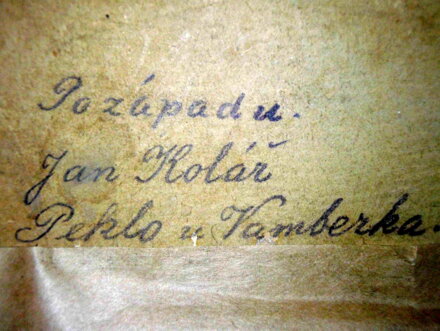 Po západu.
Jan Kolář
Peklo u Vamberka.